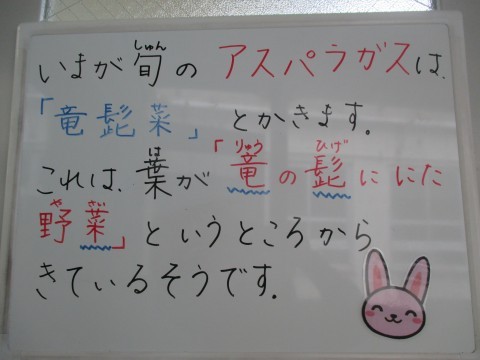 いまが旬のアスパラガスは、
しゅん
「竜髭菜」とかきます。
これは、葉が「竜の髭ににた
は りゅう ひげ
野菜」というところから
やさい
きているそうです。